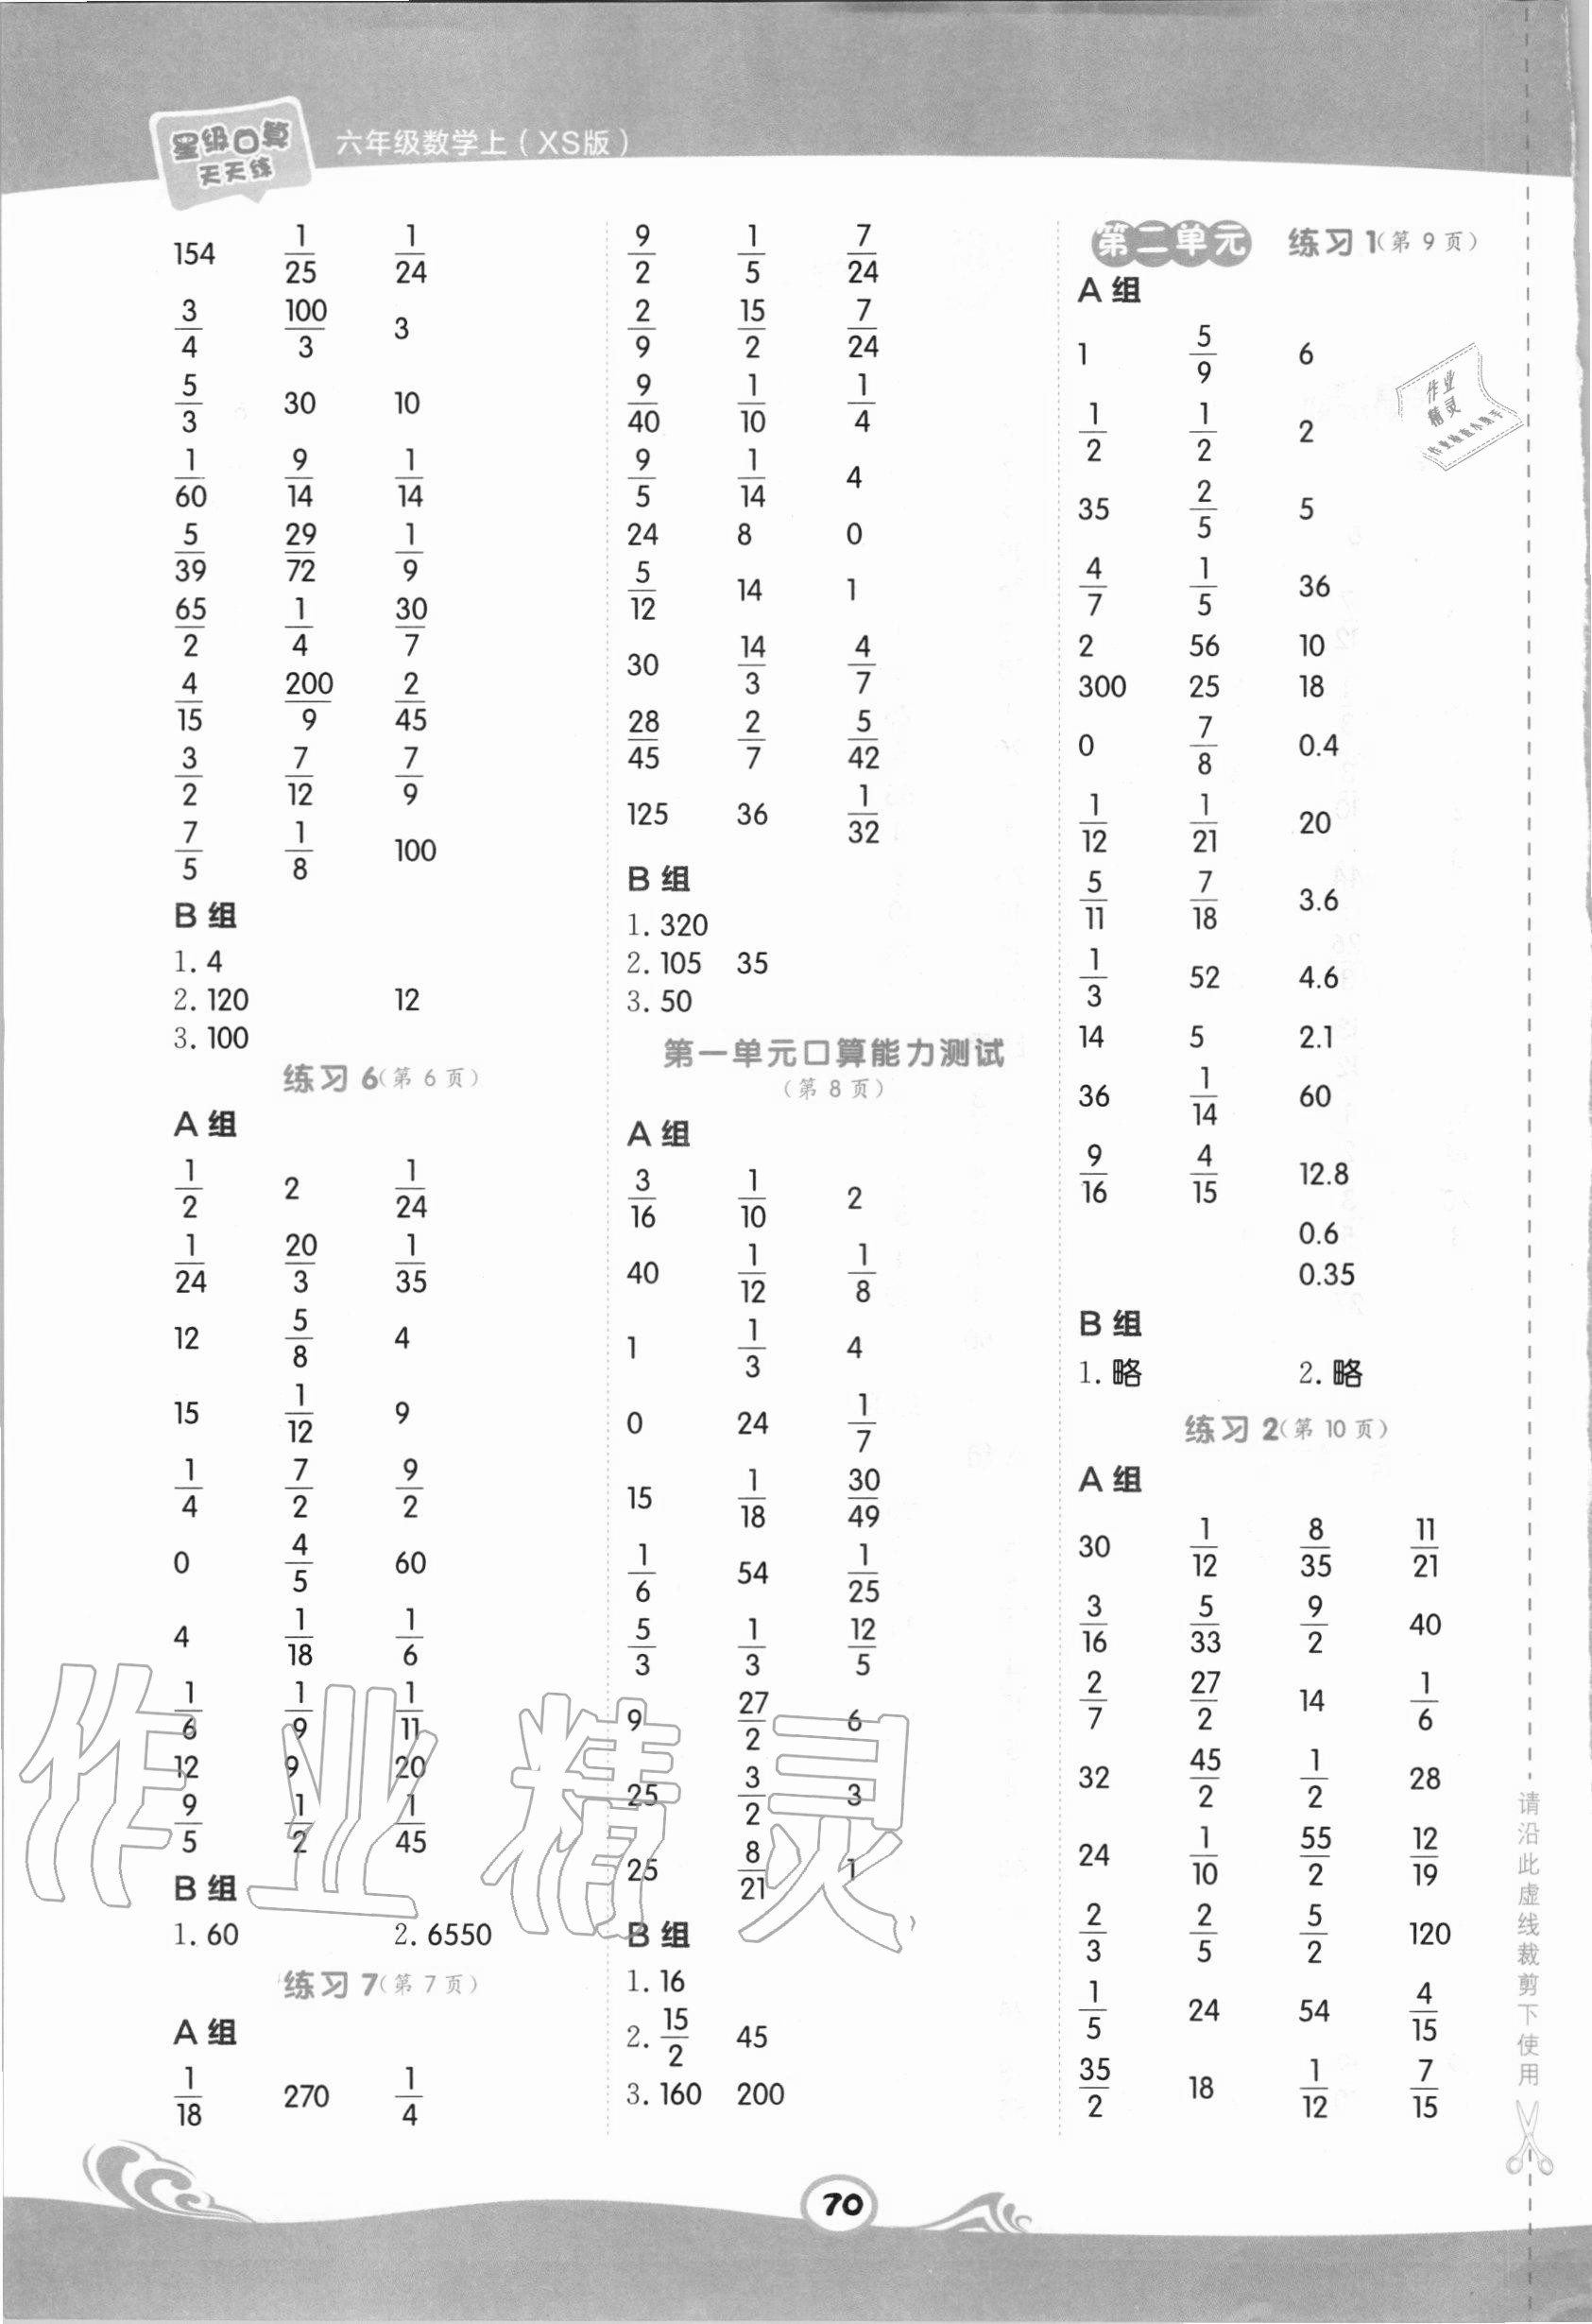 星级口算
天天练
六年级数学上(XS版)
154 1/25 1/24
3/4 100/3 3
5/3 30 10
1/60 9/14 1/14
5/39 29/72 1/9
65/2 1/4 30/7
4/15 200/9 2/45
3/2 7/12 7/9
7/5 1/8 100
B 组
1. 4
2. 120 12
3. 100
练习 6(第 6 页)
A 组
1/2 2 1/24
1/24 20/3 1/35
12 5/8 4
15 1/12 9
1/4 7/2 9/2
0 4/5 60
4 1/18 1/6
1/6 1/9 1/11
12 9 20
9/5 1/2 1/45
B 组
1. 60 2. 6550
练习 7(第 7 页)
A 组
1/18 270 1/4
9/2 1/5 7/24
2/9 15/2 7/24
9/40 1/10 1/4
9/5 1/14 4
24 8 0
5/12 14 1
30 14/3 4/7
28/45 2/7 5/42
125 36 1/32
B 组
1. 320
2. 105 35
3. 50
第一单元口算能力测试
(第 8 页)
A 组
3/16 1/10 2
40 1/12 1/8
1 1/3 4
0 24 1/7
15 1/18 30/49
1/6 54 1/25
5/3 1/3 12/5
9 27/2 6
25 3/2 3
25 8/21 1
B 组
1. 16
2. 15/2 45
3. 160 200
第二单元 练习 1(第 9 页)
A 组
1 5/9 6
1/2 1/2 2
35 2/5 5
4/7 1/5 36
2 56 10
300 25 18
0 7/8 0.4
1/12 1/21 20
5/11 7/18 3.6
1/3 52 4.6
14 5 2.1
36 1/14 60
9/16 4/15 12.8
0.6
0.35
B 组
1. 略 2. 略
练习 2(第 10 页)
A 组
30 1/12 8/35 11/21
3/16 5/33 9/2 40
2/7 27/2 14 1/6
32 45/2 1/2 28
24 1/10 55/2 12/19
2/3 2/5 5/2 120
1/5 24 54 4/15
35/2 18 1/12 7/15
作业
精灵
请沿此虚线裁剪下使用
作业精灵
70